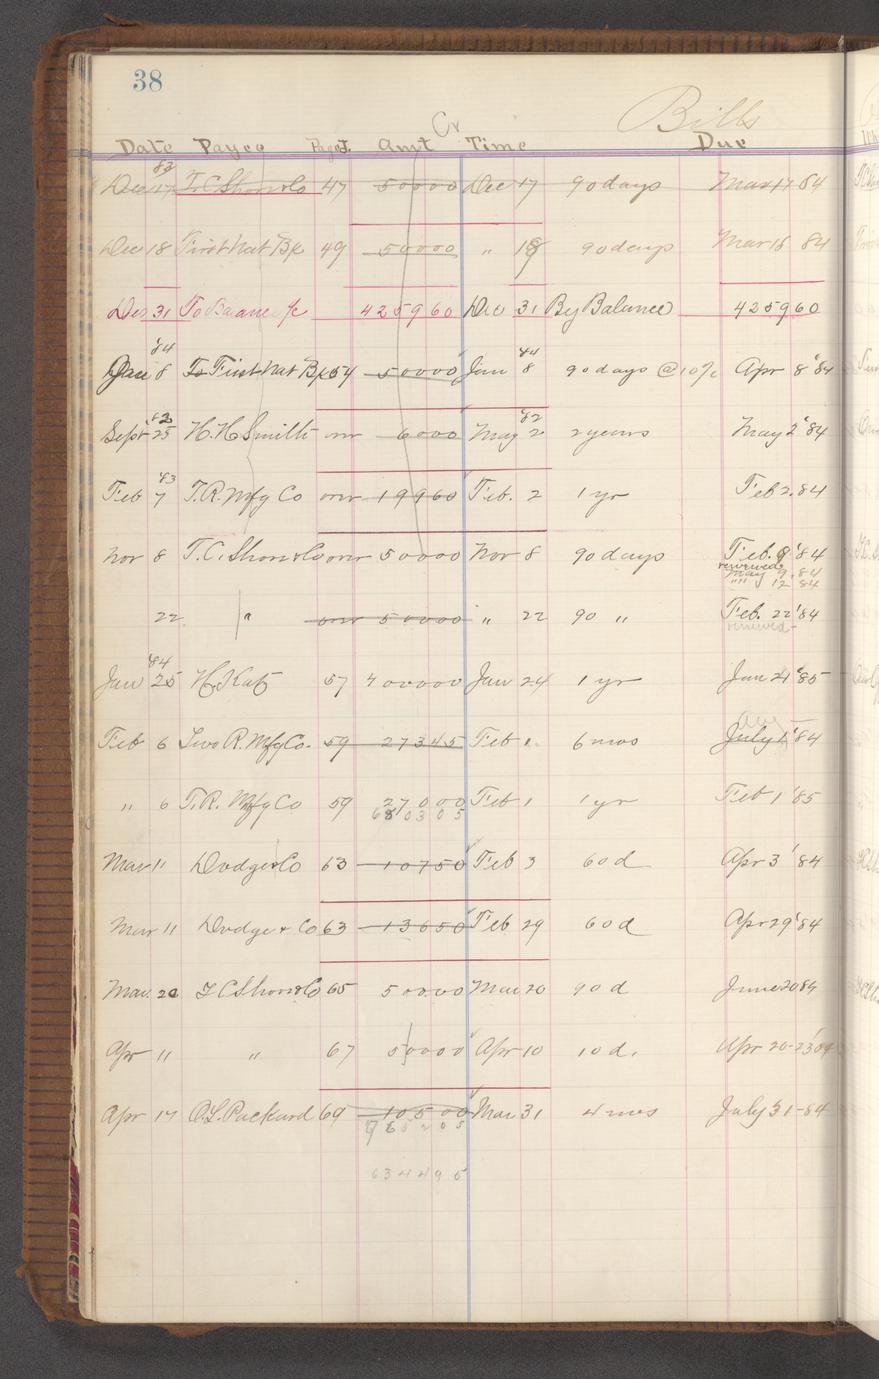 38
Cr Bills
Date Payee Page J. Amt Time Due
83
Dec 17 T. C. Shove & Co 47 50000 Dec 17 90 days Mar 17 84
Dec 18 First Nat Bk 49 50000 " 18 90 days Mar 18 84
Dec 31 To Balance % 425960 Dec 31 By Balance 425960
'84 '84
Jan 8 To First Nat Bk 54 50000 Jan 8 90 days @ 10% Apr 8 '84
'82 '82
Sept 25 H. H. Smith 6000 May 2 2 years May 2 '84
'83
Feb 7 T. R. Mfg Co 19960 Feb. 2 1 yr Feb 2. 84
Nov 8 T. C. Shove & Co 50000 Nov 8 90 days Feb. 9 '84
renewed
May 9. 84
"" 12 84
22 " 50000 " 22 90 " Feb. 22 '84
renewed
'84
Jan 25 H. Katz 57 400000 Jan 24 1 yr Jan 24 '85
Aug
Feb 6 Two R. Mfg Co. 59 27345 Feb 1. 6 mos July 1 '84
" 6 T. R. Mfg Co 59 27000 Feb 1 1 yr Feb 1 '85
680305
Mar 11 Dodge & Co 63 10750 Feb 3 60 d Apr 3 '84
Mar 11 Dodge & Co 63 13650 Feb 29 60 d Apr 29 '84
Mar. 20 T C Shove & Co 65 50000 Mar 20 90 d June 20 84
Apr 11 " 67 50000 Apr 10 10 d. Apr 20-23 '84
Apr 17 O. L. Packard 69 10500 Mar 31 4 mos July 31-84
765205
634495